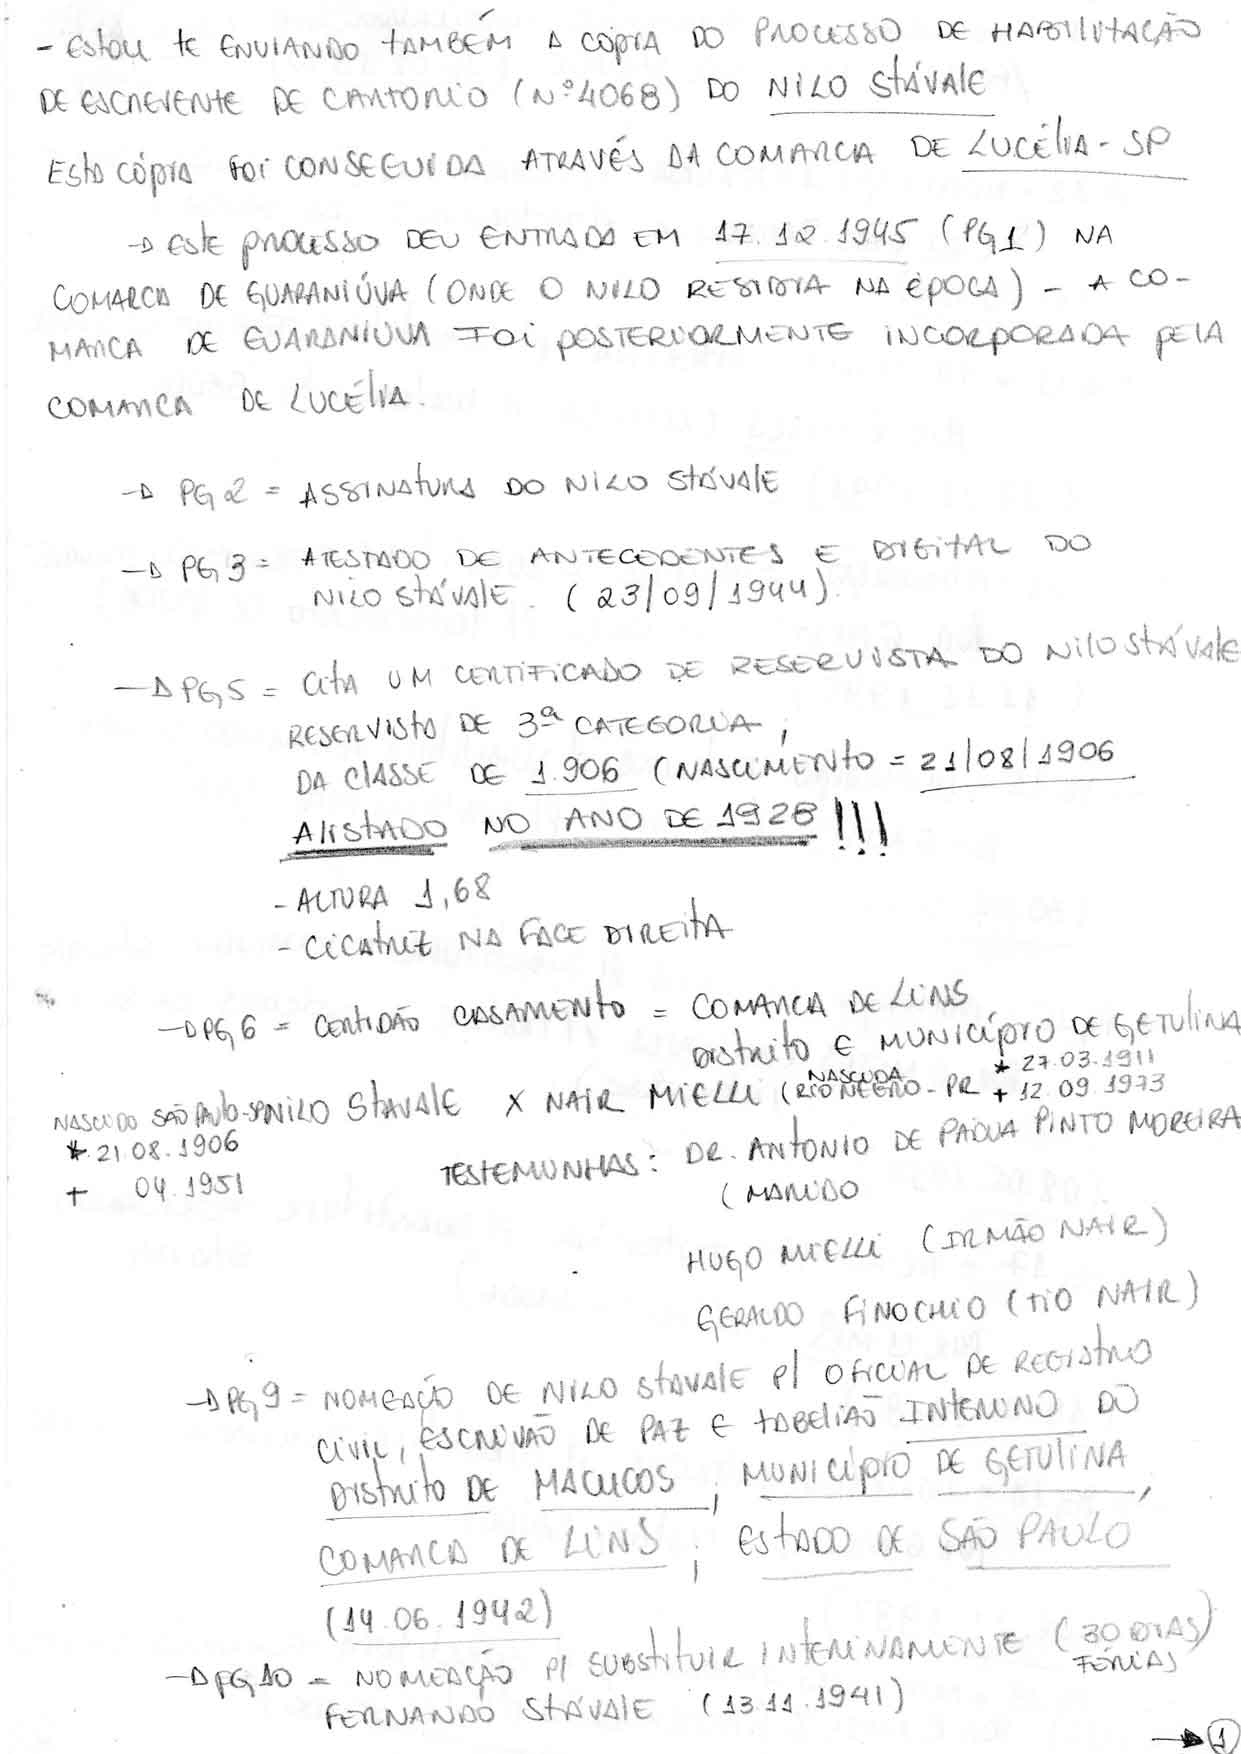 - Estou te ENVIANDO tAMBÉM A cópIA DO PROCESSO DE HABILITAÇÃO
DE ESCREVENTE DE CARTORIO (Nº 4068) DO NILO StÁVALE
Esta cópIA FOI CONSEGUIDA ATRAVÉS DA COMARCA DE LUCÉlIA - SP
→ este processo DEU ENTRADA EM 17.12.1945 (PG 1) NA
COMARCA DE GUARANIÚVA (ONDE O NILO RESIDIA NA ÉPOCA) - A CO-
MARCA DE GUARANIUVA FOI POSTERIORMENTE INCORPORADA pElA
COMARCA DE LUCÉlIA.
→ PG 2 = ASSINAtURA DO NILO StÁVAlE
→ PG 3 = ATESTADO DE ANTECEDENTES E DIGITAL DO
NILO StÁVALE. (23/09/1944)
→ PG 5 = CitA UM CERTIFICADO DE RESERVISTA DO NILO StÁVAlE
RESERVIStA DE 3ª CATEGORIA,
DA ClASSE DE 1.906 (NASCIMENtO = 21/08/1906
AlIStADO NO ANO DE 1926 !!!
- ALTURA 1,68
- CicAtRIZ NA FACE DIREItA
→ PG 6 = CERtIDÃO CASAMENtO = COMARCA DE LINS
DIStRItO E MUNICÍpIO DE GETULINA
* 27.03.1911
NASCIDA
NASCIDO SÃO PAUlo-SP NILO StAVAlE X NAIR MIELLI (RIO NEGRO - PR + 12.09.1973
* 21.08.1906
+ 04.1951
TESTEMUNHAS: DR. ANTONIO DE PÁDUA PINTO MOREIRA
(MARIDO
HUGO MIELLI (IRMÃO NAIR)
GERALDO FINOCHIO (tIO NAIR)
→ PG 9 = NOMEAÇÃO DE NILO StAVAlE P/ OFICIAL DE REGIStRO
CIVIL, ESCRIVÃO DE PAZ E tABELIÃO INTERINO DO
DIStRItO DE MACUCOS, MUNICípIO DE GETULINA,
COMARCA DE LINS, EStADO DE SÃO PAULO
(14.06.1942)
→ PG 10 = NOMEAÇÃO P/ SUBStItUIR INtERINAMENTE (30 DIAS)
FÉRIAS
FERNANDO StÁVAlE (13.11.1941)
→ 1